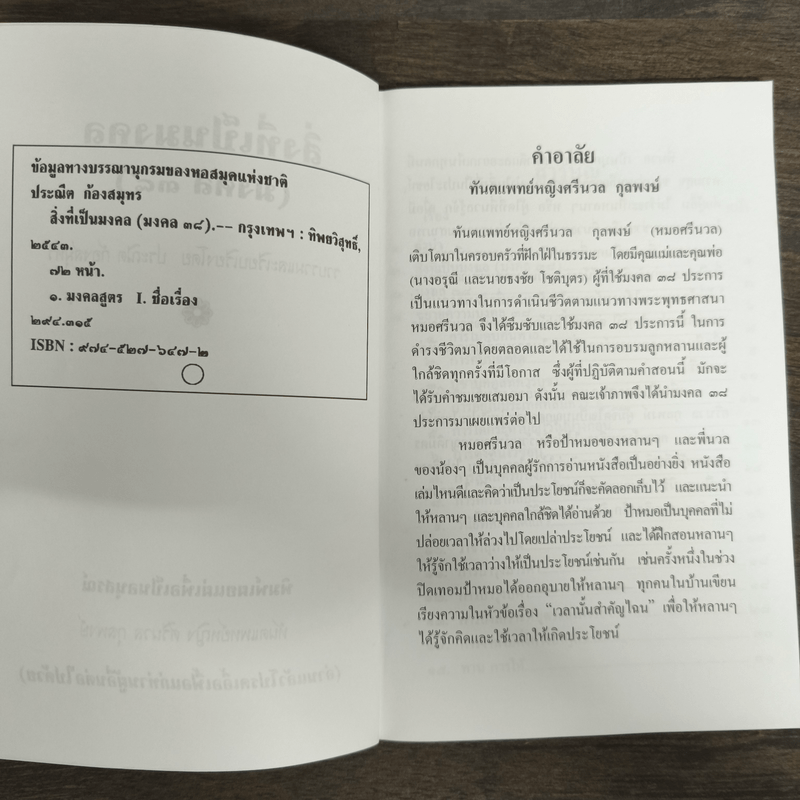 ข้อมูลทางบรรณานุกรมของหอสมุดแห่งชาติ
ประณีต ก้องสมุทร
สิ่งที่เป็นมงคล (มงคล ๓๘).-- กรุงเทพฯ : ทิพยวิสุทธิ์,
๒๕๔๓.
๗๒ หน้า.
๑. มงคลสูตร I. ชื่อเรื่อง
๒๙๔.๓๑๕
ISBN : ๙๗๔-๕๒๗-๖๔๗-๒
คำอาลัย
ทันตแพทย์หญิงศรีนวล กุลพงษ์
ทันตแพทย์หญิงศรีนวล กุลพงษ์ (หมอศรีนวล)
เติบโตมาในครอบครัวที่ฝักใฝ่ในธรรมะ โดยมีคุณแม่และคุณพ่อ
(นางอรุณี และนายธงชัย โชติบุตร) ผู้ที่ใช้มงคล ๓๘ ประการ
เป็นแนวทางในการดำเนินชีวิตตามแนวทางพระพุทธศาสนา
หมอศรีนวล จึงได้ซึมซับและใช้มงคล ๓๘ ประการนี้ ในการ
ดำรงชีวิตมาโดยตลอดและได้ใช้ในการอบรมลูกหลานและผู้
ใกล้ชิดทุกครั้งที่มีโอกาส ซึ่งผู้ที่ปฏิบัติตามคำสอนนี้ มักจะ
ได้รับคำชมเชยเสมอมา ดังนั้น คณะเจ้าภาพจึงได้นำมงคล ๓๘
ประการมาเผยแพร่ต่อไป
หมอศรีนวล หรือป้าหมอของหลานๆ และพี่นวล
ของน้องๆ เป็นบุคคลผู้รักการอ่านหนังสือเป็นอย่างยิ่ง หนังสือ
เล่มไหนดีและคิดว่าเป็นประโยชน์ก็จะคัดลอกเก็บไว้ และแนะนำ
ให้หลานๆ และบุคคลใกล้ชิดได้อ่านด้วย ป้าหมอเป็นบุคคลที่ไม่
ปล่อยเวลาให้ล่วงไปโดยเปล่าประโยชน์ และได้ฝึกสอนหลานๆ
ให้รู้จักใช้เวลาว่างให้เป็นประโยชน์เช่นกัน เช่นครั้งหนึ่งในช่วง
ปิดเทอมป้าหมอได้ออกอุบายให้หลานๆ ทุกคนในบ้านเขียน
เรียงความในหัวข้อเรื่อง "เวลานั้นสำคัญไฉน" เพื่อให้หลานๆ
ได้รู้จักคิดและใช้เวลาให้เกิดประโยชน์